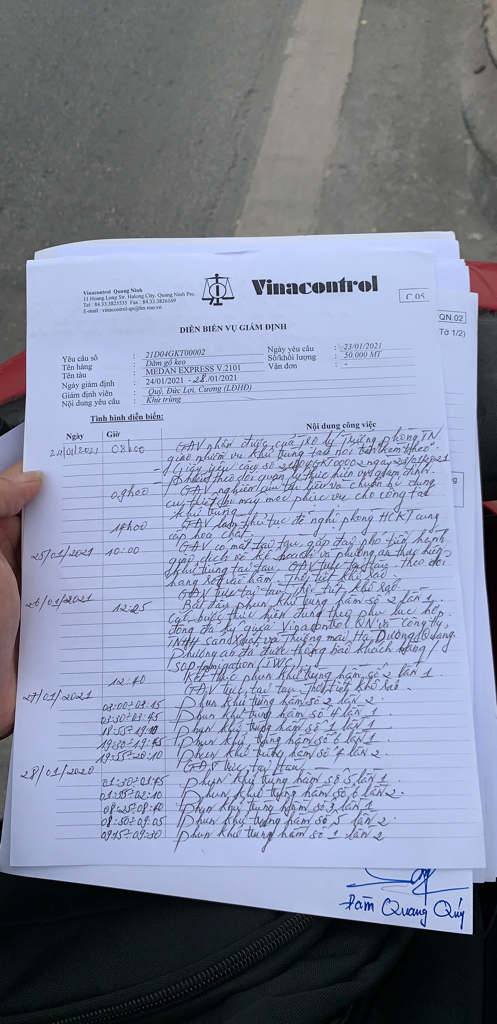 Vinacontrol Quang Ninh
11 Hoang Long Str. Halong City. Quang Ninh Pro.
Tel : 84.33.3825535 Fax: 84.33.3826169
E-mail : vinacontrol-qn@hn.vnn.vn
Vinacontrol
C 05
QN.02
Tờ 1/2)
DIỄN BIẾN VỤ GIÁM ĐỊNH
Yêu cầu số : 21D04GKT00002
Ngày yêu cầu : 23/01/2021
Tên hàng : Dăm gỗ keo
Số/khối lượng : 50.000 MT
Tên tàu : MEDAN EXPRESS V.2101
Vận đơn : -
Ngày giám định : 24/01/2021 - 28/01/2021
Giám định viên : Quý, Đức Lợi, Cương (LĐHĐ)
Nội dung yêu cầu : Khử trùng
Tình hình diễn biến:
Ngày Giờ Nội dung công việc
24/01/2021 08h00 GĐV nhận được của Trợ lý Thưởng phòng TN
giao nhiệm vụ khử trùng tàu nói trên kèm theo
Giấy yêu cầu số 21D04GKT00002 ngày 23/01/2021
09h00 GĐV nghiên cứu tài liệu và chuẩn bị dụng
cụ, thiết bị máy móc phục vụ cho công tác
khử trùng
14h00 GĐV làm thủ tục đề nghị phòng HCKT cung
cấp hóa chất
25/01/2021 10:00 GĐV có mặt tại tàu, gặp đại phó tiến hành
giao dịch về kế hoạch và phương án thực hiện
khử trùng tại tàu. GĐV trực tại tàu theo dõi
hàng rót vào hầm. Thời tiết khô ráo.
26/01/2021 GĐV trực tại tàu. Thời tiết khô ráo.
12:25 Bắt đầu phun khử trùng hầm số 2 lần 1.
Các bước thực hiện đúng theo phụ lục hợp
đồng đã ký giữa Vinacontrol QN và Công ty
TNHH Sản xuất và Thương mại Hạ Dương Quang.
Phương án đã được thông báo khách hàng /
12:40 Kết thúc phun khử trùng hầm số 2 lần 1.
27/01/2021 GĐV trực tại tàu. Thời tiết khô ráo.
03:00÷03:15 Phun khử trùng hầm số 2 lần 2.
03:30÷03:45 Phun khử trùng hầm số 4 lần 1.
18:55÷19:10 Phun khử trùng hầm số 1 lần 1
19:30÷19:45 Phun khử trùng hầm số 6 lần 1
19:55÷20:10 Phun khử trùng hầm số 4 lần 2.
28/01/2020 GĐV trực tại tàu.
01:30÷01:45 Phun khử trùng hầm số 5 lần 1.
01:55÷02:10 Phun khử trùng hầm số 6 lần 2.
08:25÷08:40 Phun khử trùng hầm số 3 lần 1
08:50÷09:05 Phun khử trùng hầm số 5 lần 2
0915÷09:30 Phun khử trùng hầm số 1 lần 2
Đàm Quang Quý